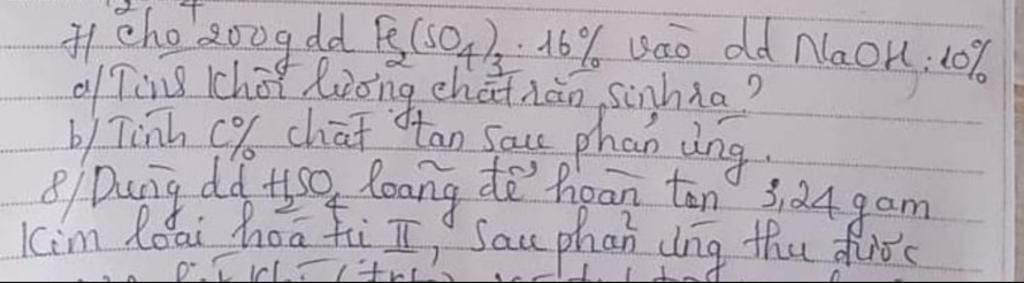 7/ Cho 200g dd Fe2(SO4)3 . 16% vào dd NaOH : 10%
a/ Tính khối lượng chất rắn sinh ra?
b/ Tính C% chất tan sau phản ứng.
8/ Dùng dd H2SO4 loãng để hoàn tan 3,24 gam
Kim loại hoá trị II, sau phản ứng thu được